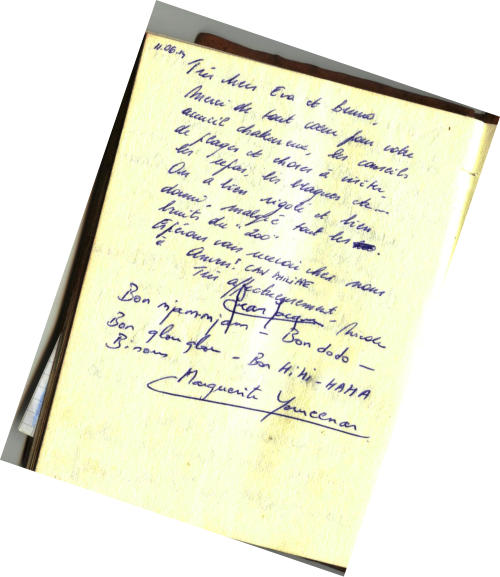 11.06.14
Très chers Eva et Bruno,
Merci de tout cœur pour votre
accueil chaleureux, les conseils
de plages et choses à visiter
les repas, les blagues de...
On a bien rigolé et bien
dormi, malgré tout les
bruits du "zoo".
Espérons vous revoir chez nous
à Anvers!
Très affectueusement.
Jean Jacques - Nicole
Bon mjammjam - Bon dodo -
Bon glou glou - Bon HiHi-HAHA
Bisous
Marguerite Yourcenar